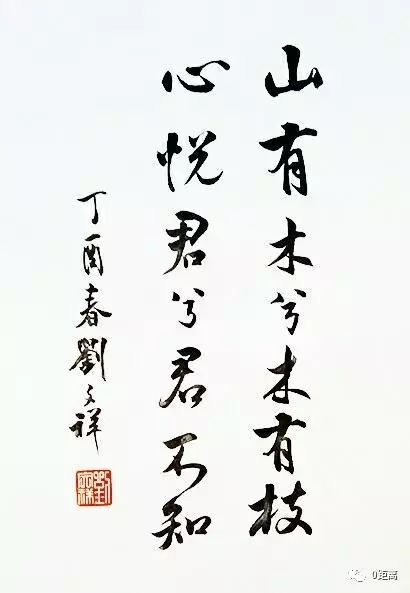 山有木兮木有枝
心悦君兮君不知
丁酉春劉文祥
0距离